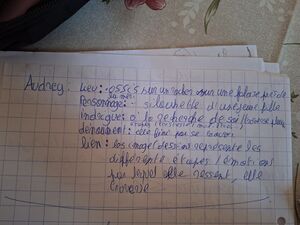 Audrey : Lieu : assis sur un rocher sur une falaise près de
la mer
Personnage : silouhette d'une jeune fille
Indique : à la recherche de soi,
dénoument : elle fini par se trouver
lien : les images/dessins représente les
différente étapes/émotions
par lequel elle ressent, elle